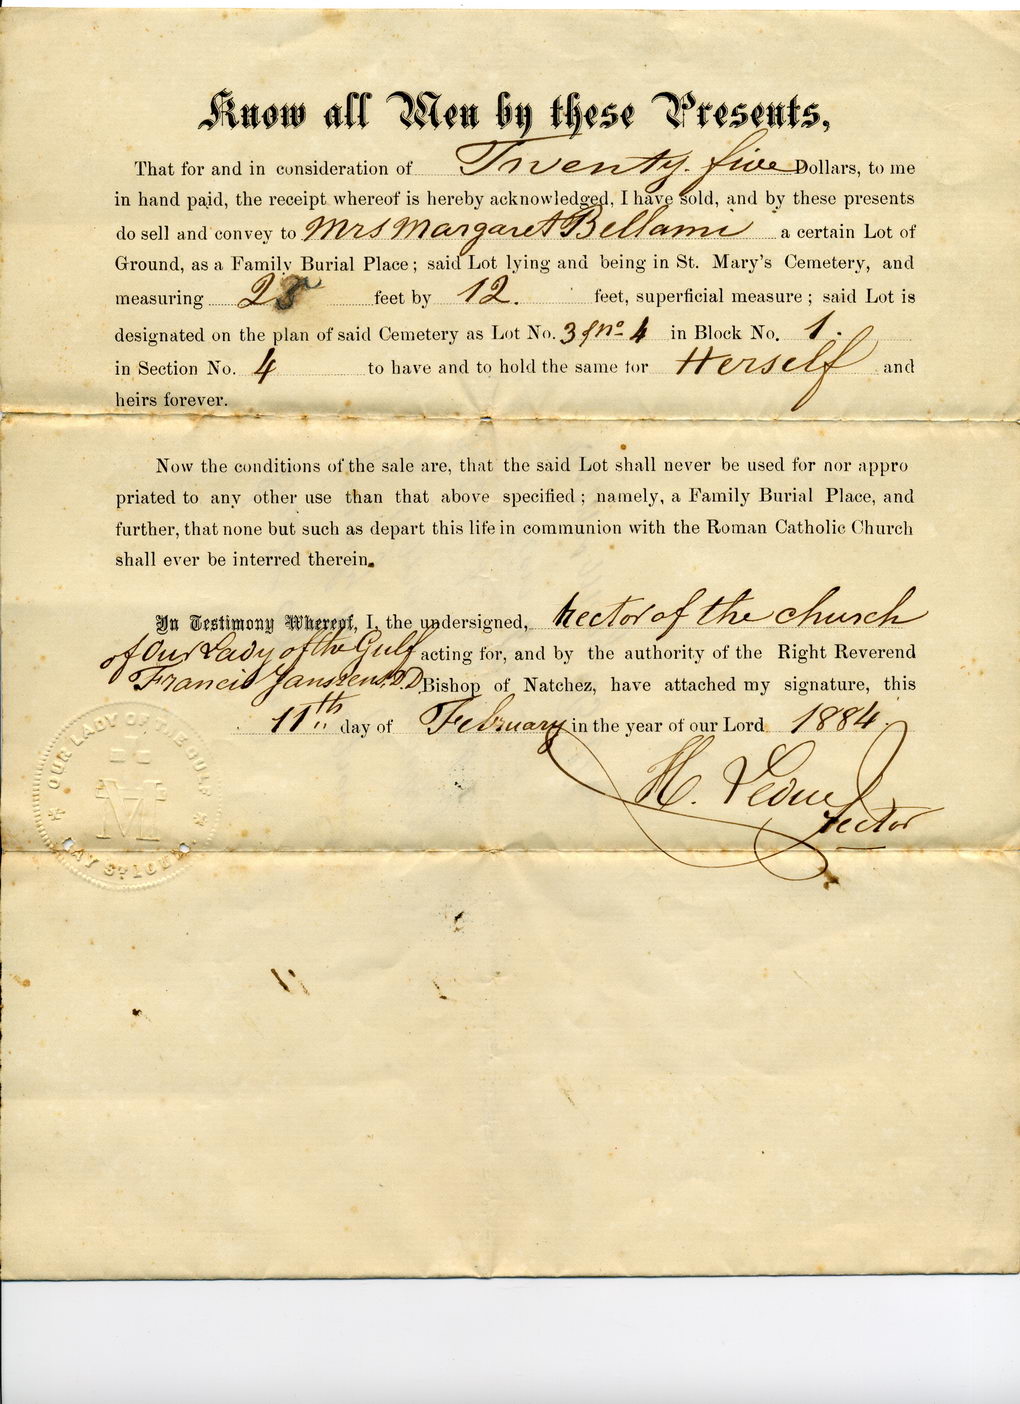 Know all Men by these Presents,
That for and in consideration of Twenty-five Dollars, to me
in hand paid, the receipt whereof is hereby acknowledged, I have sold, and by these presents
do sell and convey to Mrs Margaret Bellami a certain Lot of
Ground, as a Family Burial Place; said Lot lying and being in St. Mary's Cemetery, and
measuring feet by 12. feet, superficial measure; said Lot is
designated on the plan of said Cemetery as Lot No. 3 & no 4 in Block No. 1.
in Section No. 4 to have and to hold the same for Herself and
heirs forever.
Now the conditions of the sale are, that the said Lot shall never be used for nor appro
priated to any other use than that above specified; namely, a Family Burial Place, and
further, that none but such as depart this life in communion with the Roman Catholic Church
shall ever be interred therein.
In Testimony Whereof, I, the undersigned, Rector of the church
of Our Lady of the Gulf acting for, and by the authority of the Right Reverend
Francis Janssens, D.D. Bishop of Natchez, have attached my signature, this
11th day of February in the year of our Lord 1884.
H. Leduc
Rector
OUR LADY OF THE GULF
BAY ST. LOUIS